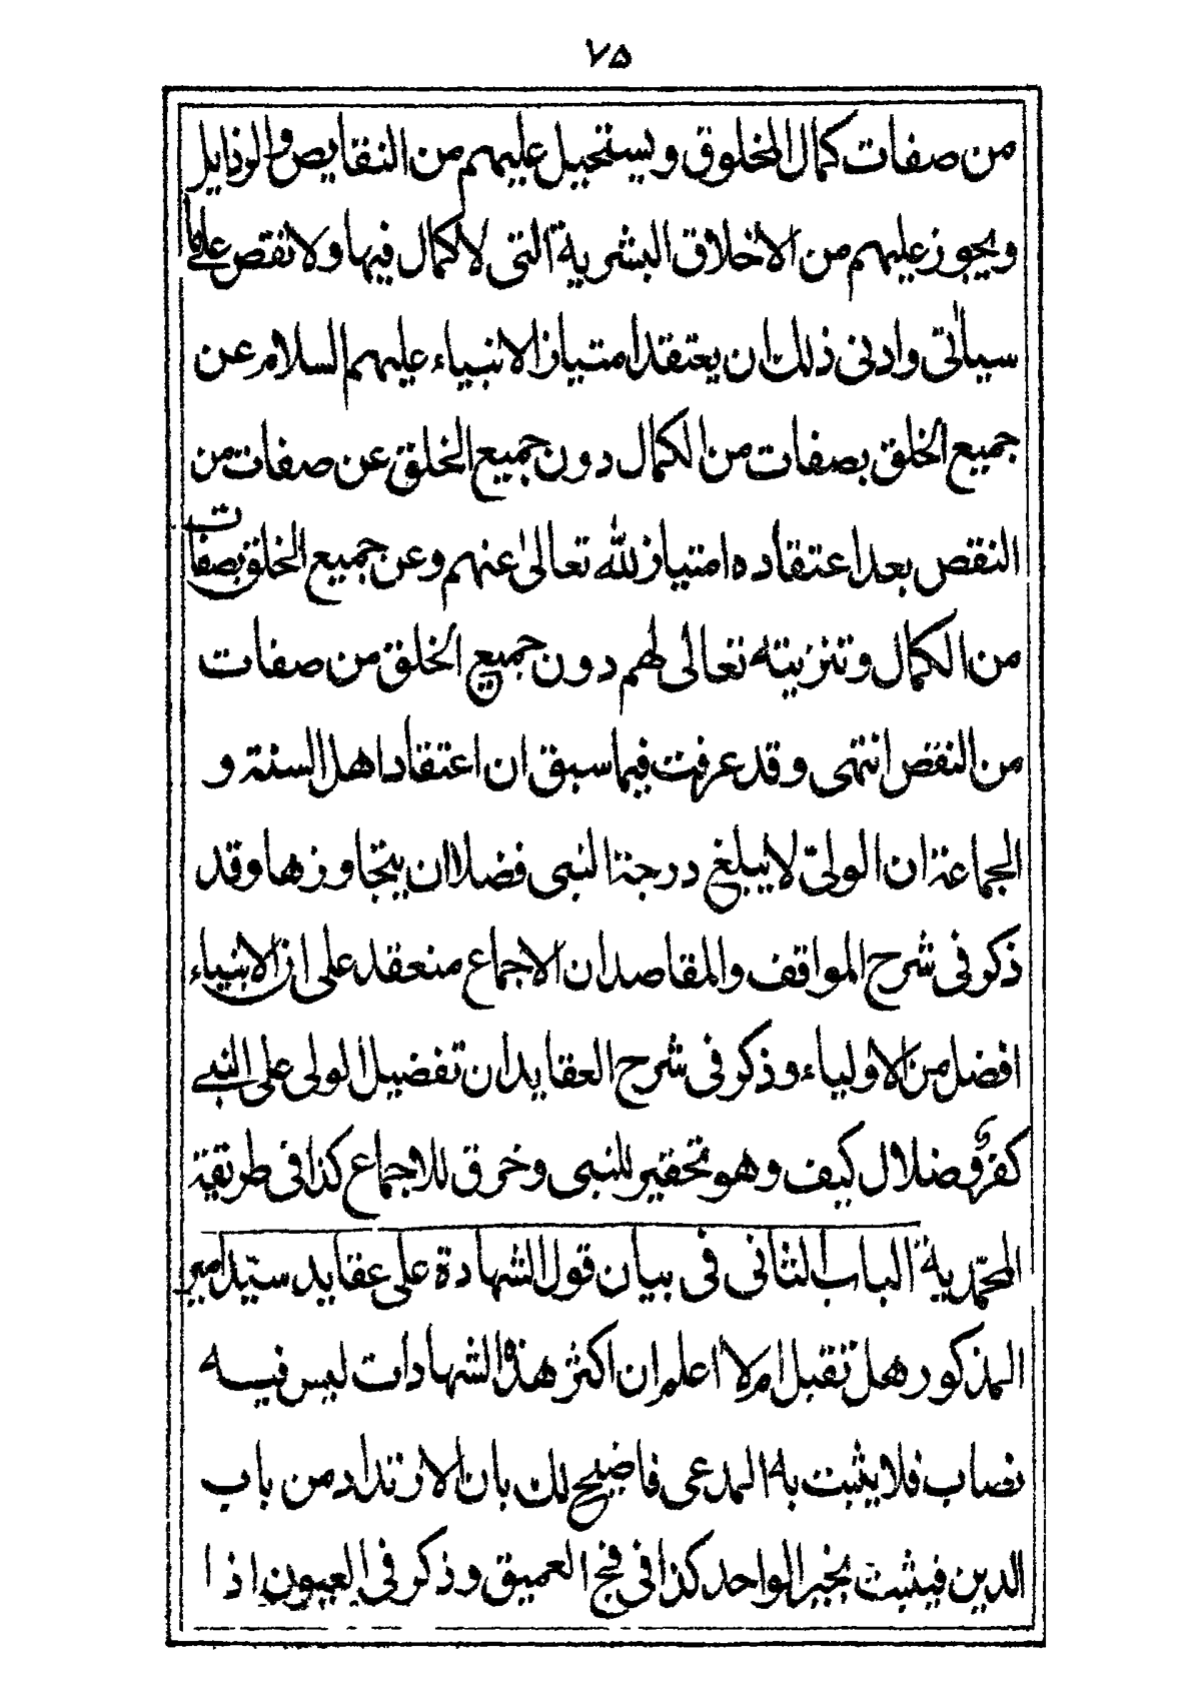 ۷۵
من صفات كمال المخلوق ويستحيل عليهم من النقايص والرذايل
ويجوز عليهم من الاخلاق البشرية التى لا كمال فيها ولا نقص على ما
سيأتى وادنى ذلك ان يعتقد امتياز الانبياء عليهم السلام عن
جميع الخلق بصفات من الكمال دون جميع الخلق عن صفات من
النقص بعد اعتقاده امتياز لله تعالى عنهم وعن جميع الخلق بصفات
من الكمال وتنزيته تعالى لهم دون جميع الخلق من صفات
من النقص انتهى وقد عرفت فيما سبق ان اعتقاد اهل السنة و
الجماعة ان الولى لا يبلغ درجة النبى فضلا ان يتجاوزها وقد
ذكر فى شرح المواقف والمقاصد ان الاجماع منعقد على ان الانبياء
افضل من الاولياء وذكر فى شرح العقايد ان تفضيل الولى على النبى
كفر وضلال كيف وهو تحقير للنبى وخرق للاجماع كذا فى طريقة
المحمّدية الباب الثانى فى بيان قول الشهادة على عقايد سيّد امير
المذكور هل تقبل ام لا اعلم ان اكثر هذه الشهادات ليس فيه
نصاب فلا يثبت به المدعى فاضيح لك بان الارتداد من باب
الدين فيثبت بخبر الواحد كذا فى فج العميق وذكر فى العيون اذا